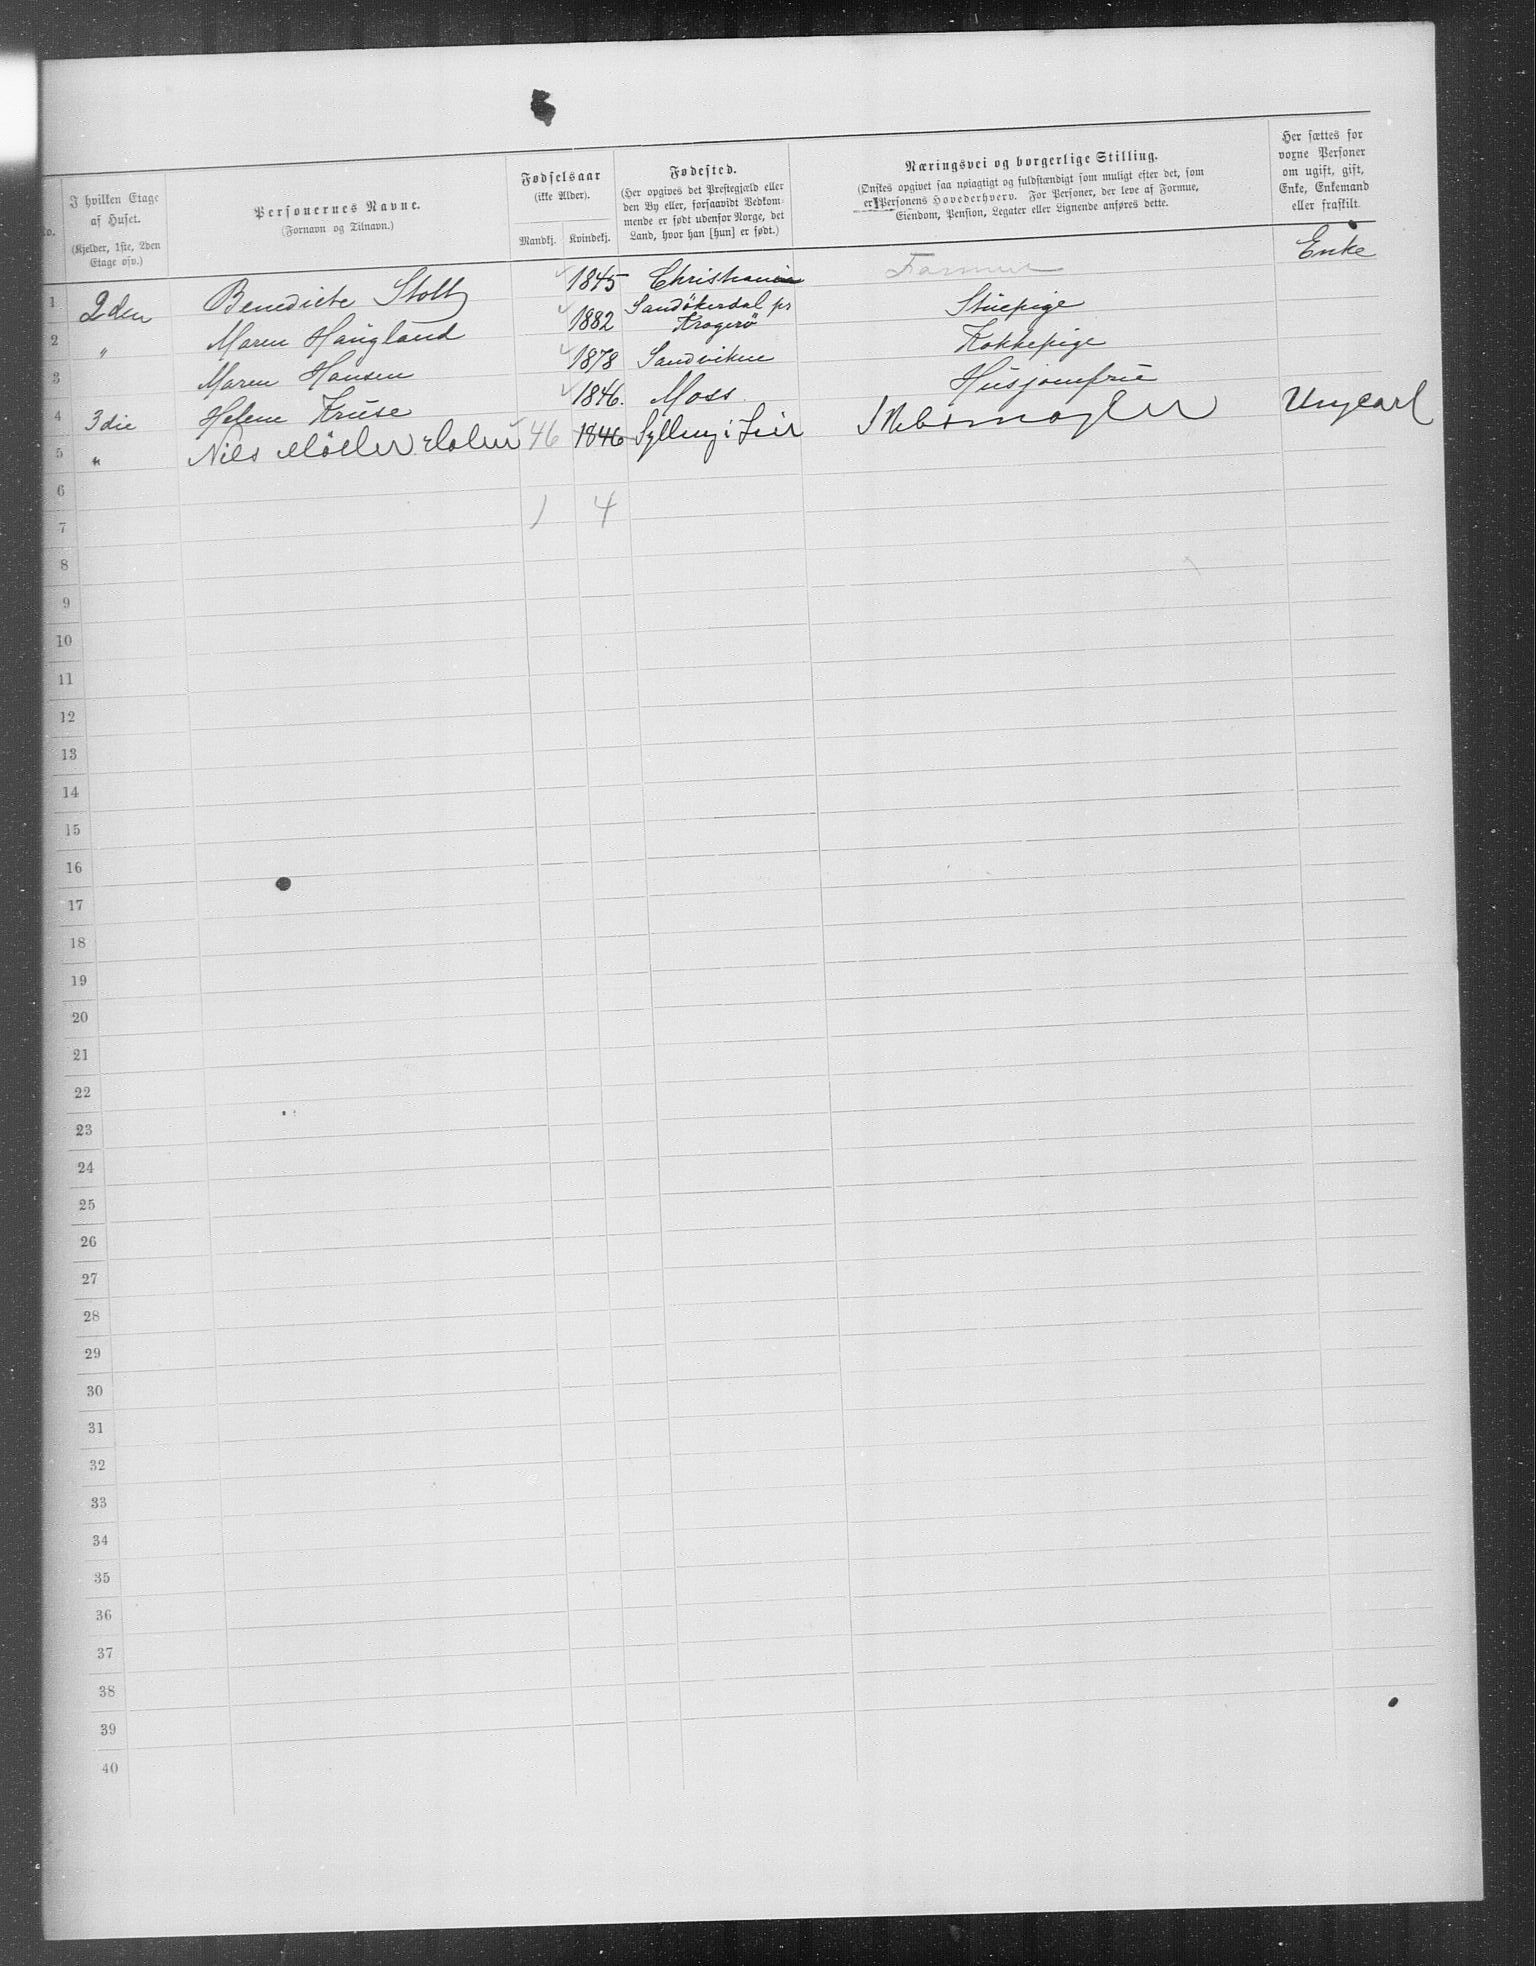 No.
I hvilken Etage af Huset.
(Kjelder, 1ste, 2den Etage osv.)
Personernes Navne.
(Fornavn og Tilnavn.)
Fødselsaar
(ikke Alder).
Mandkj.
Kvindekj.
Fødested.
(Her opgives det Prestegjæld eller
den By eller, forsaavidt Vedkom-
mende er født udenfor Norge, det
Land, hvor han [hun] er født.)
Næringsvei og borgerlige Stilling.
(Ønskes opgivet saa nøiagtigt og fuldstændigt som muligt efter det, som
er Personens Hovederhverv. For Personer, der leve af Formue,
Eiendom, Pension, Legater eller Lignende anføres dette.
Her sættes for
voxne Personer
om ugift, gift,
Enke, Enkemand
eller fraskilt.
1 2den Benedicte Stoltz 1845 Christiania Formue Enke
2 " Maren Haugland 1882 Sandøkerdal pr Kragerø Stuepige
3 Maren Hansen 1878 Sandviken Kokkepige
4 3die Helene Kruse 1846. Moss Husjomfrue
5 " Nils Møller Holm 46 1846 Sylling i Lier Skibsmægler Ungkarl
6
7 1 4
8
9
10
11
12
13
14
15
16
17
18
19
20
21
22
23
24
25
26
27
28
29
30
31
32
33
34
35
36
37
38
39
40